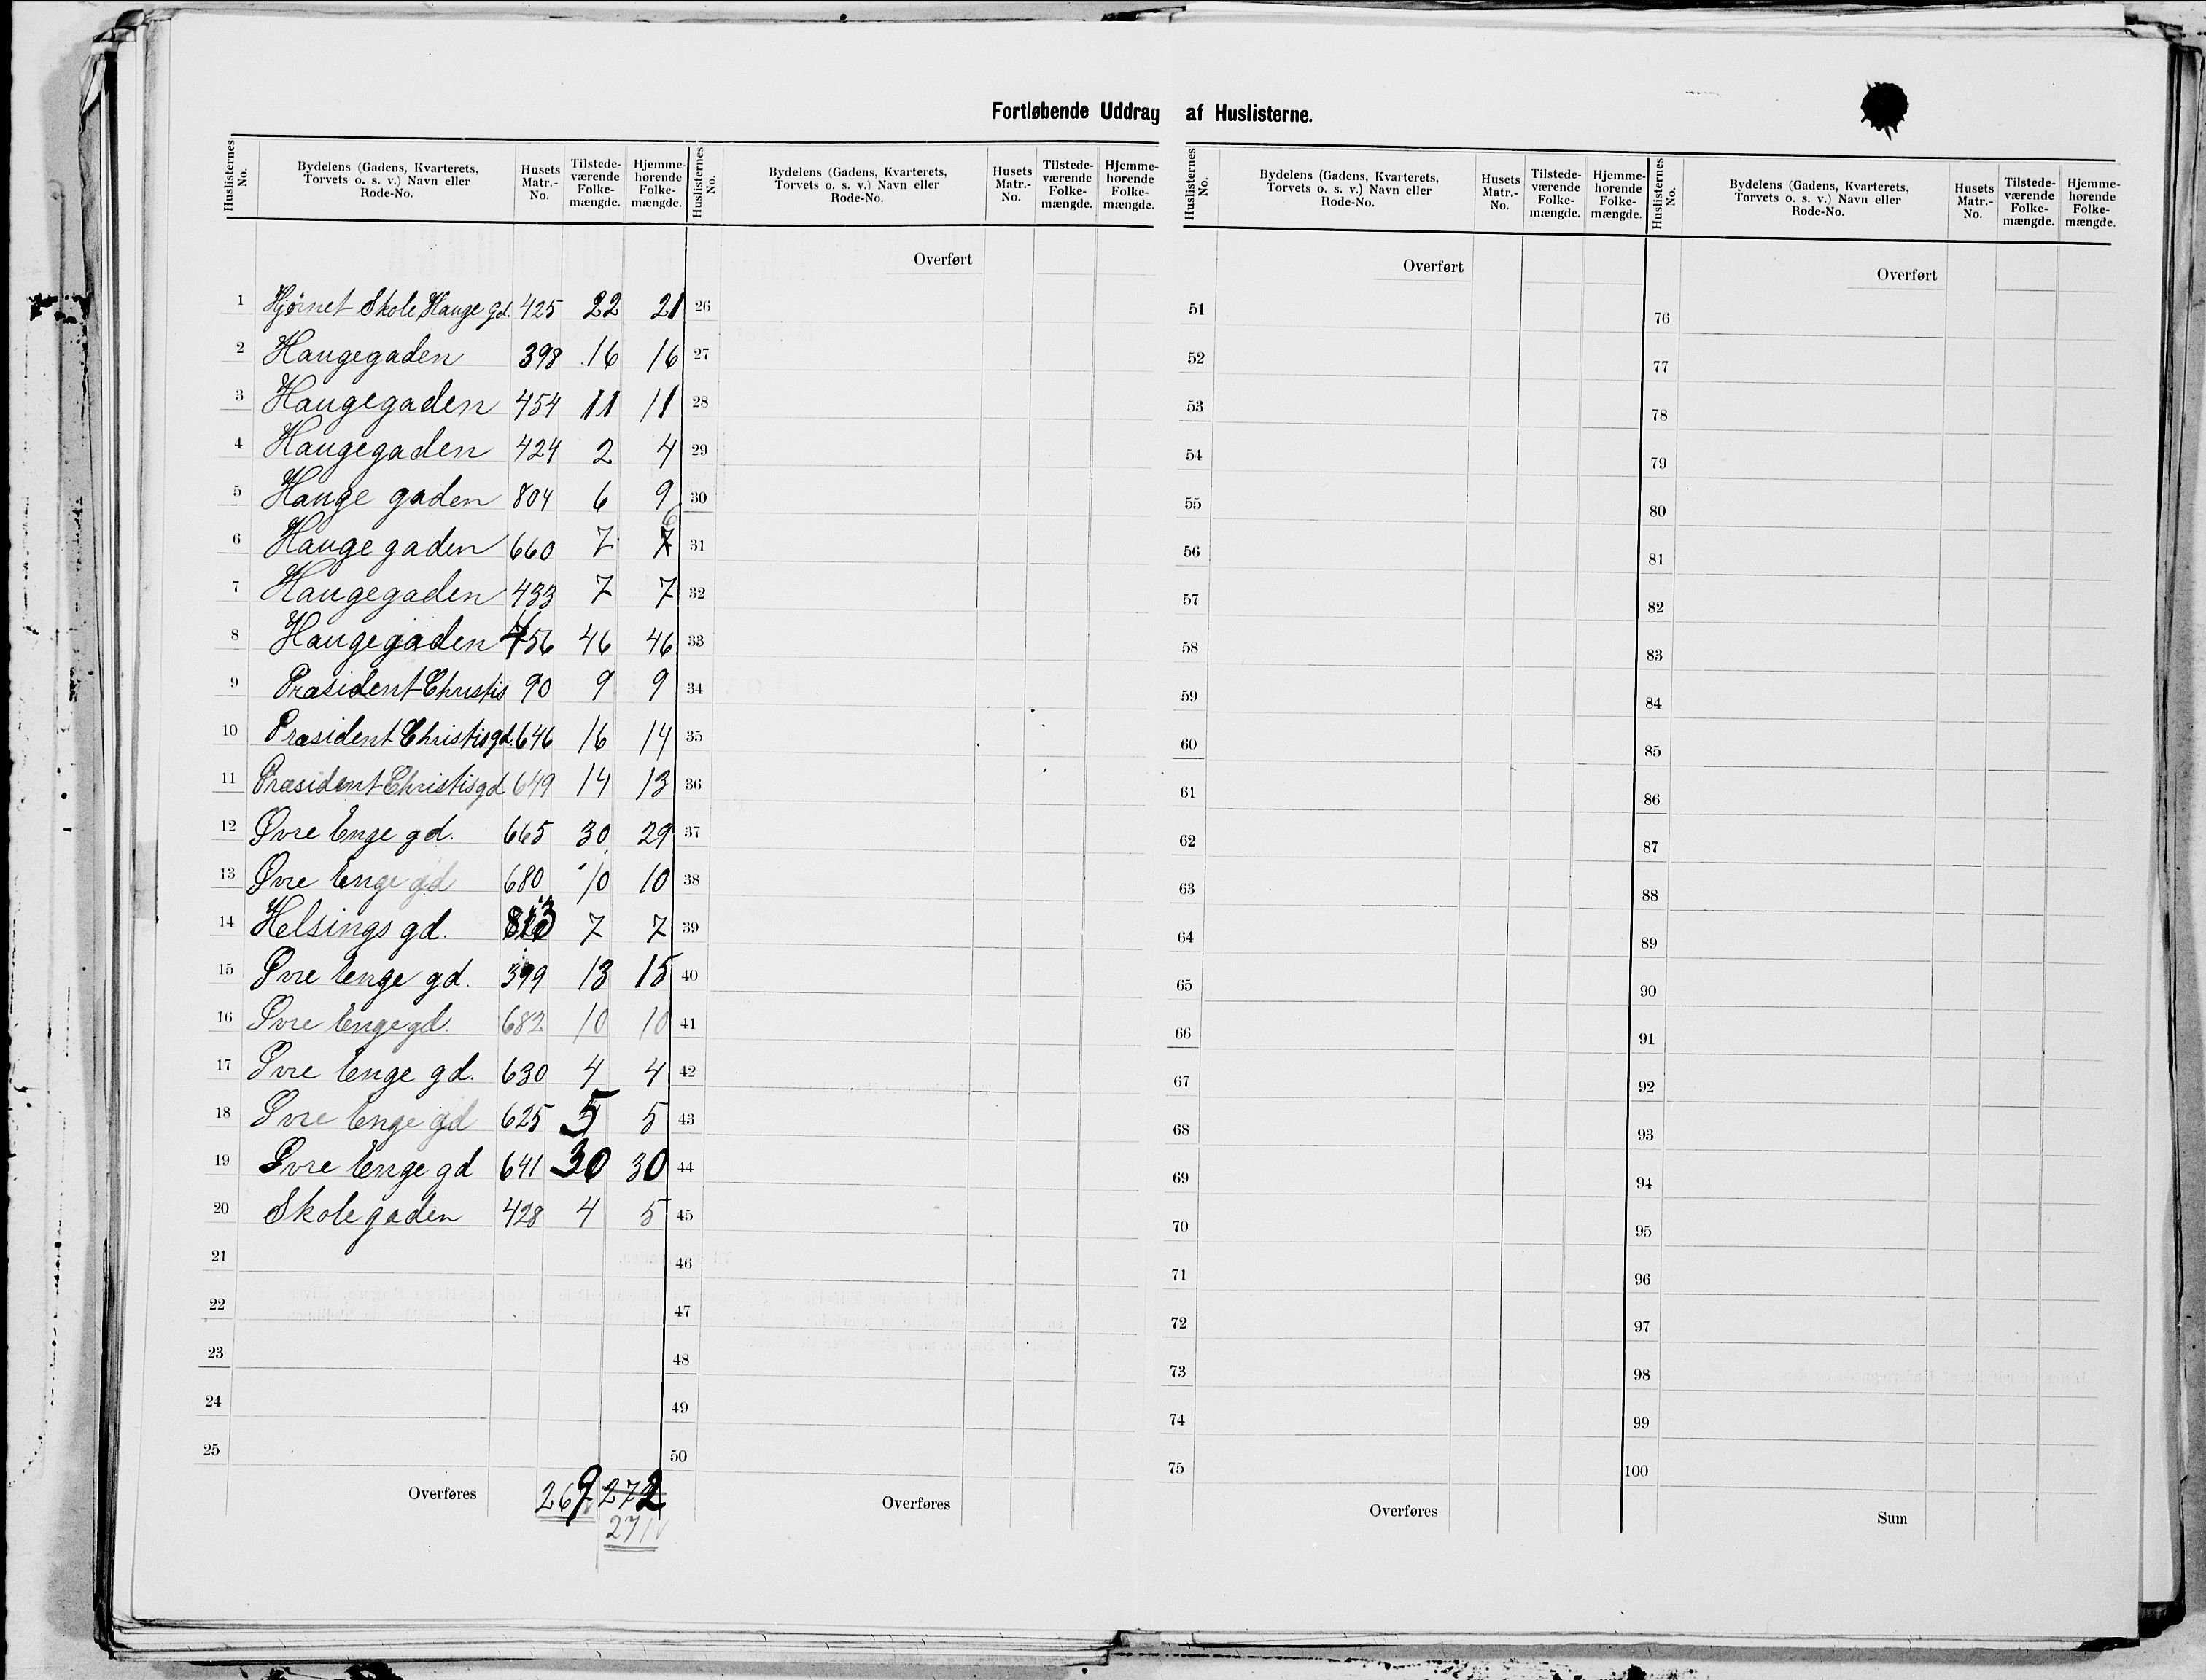 Fortløbende Uddrag af Huslisterne.
Huslisternes No. Bydelens (Gadens, Kvarterets, Torvets o. s. v.) Navn eller Rode-No. Husets Matr.-No. Tilstede-værende Folke-mængde. Hjemme-hørende Folke-mængde.
Huslisternes No. Bydelens (Gadens, Kvarterets, Torvets o. s. v.) Navn eller Rode-No. Husets Matr.-No. Tilstede-værende Folke-mængde. Hjemme-hørende Folke-mængde.
Huslisternes No. Bydelens (Gadens, Kvarterets, Torvets o. s. v.) Navn eller Rode-No. Husets Matr.-No. Tilstede-værende Folke-mængde. Hjemme-hørende Folke-mængde.
Huslisternes No. Bydelens (Gadens, Kvarterets, Torvets o. s. v.) Navn eller Rode-No. Husets Matr.-No. Tilstede-værende Folke-mængde. Hjemme-hørende Folke-mængde.
Overført Overført Overført
1 Hjørnet Skole Hauge gd. 425 22 21 26 51 76
2 Haugegaden 398 16 16 27 52 77
3 Haugegaden 454 11 11 28 53 78
4 Haugegaden 424 2 4 29 54 79
5 Hauge gaden 804 6 9 30 55 80
6 Hauge gaden 660 7 7 6 31 56 81
7 Haugegaden 433 7 7 32 57 82
8 Haugegaden 456 46 46 33 58 83
9 Præsident Christis 90 9 9 34 59 84
10 Præsident Christisgd. 646 16 14 35 60 85
11 Præsident Christisgd 649 14 13 36 61 86
12 Øvre Enge gd. 665 30 29 37 62 87
13 Øvre Enge gd 680 10 10 38 63 88
14 Helsings gd. 7 7 39 64 89
15 Øvre Enge gd. 399 13 15 40 65 90
16 Øvre Enge gd. 682 10 10 41 66 91
17 Øvre Enge gd. 630 4 4 42 67 92
18 Øvre Enge gd 625 5 5 43 68 93
19 Øvre Enge gd 641 30 30 44 69 94
20 Skolegaden 428 4 5 45 70 95
21 46 71 96
22 47 72 97
23 48 73 98
24 49 74 99
25 50 75 100
Overføres 269 272 Overføres Overføres Sum
271